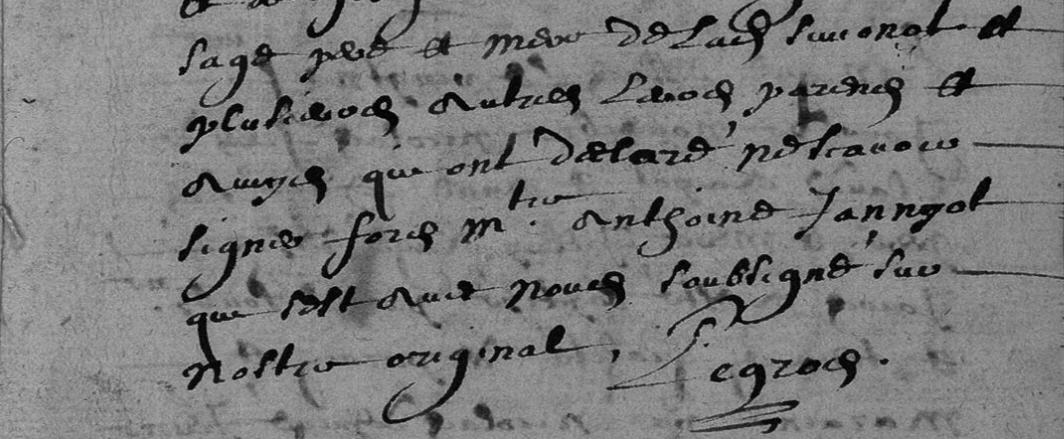 sage pere et mere de lad simonot et
plusieurs autres leurs parens et
amys qui ont declaré nescavoir
signer fors mtre Anthoine Jannyot
que sest avec nous soubsigné sur
nostre original, Legros.